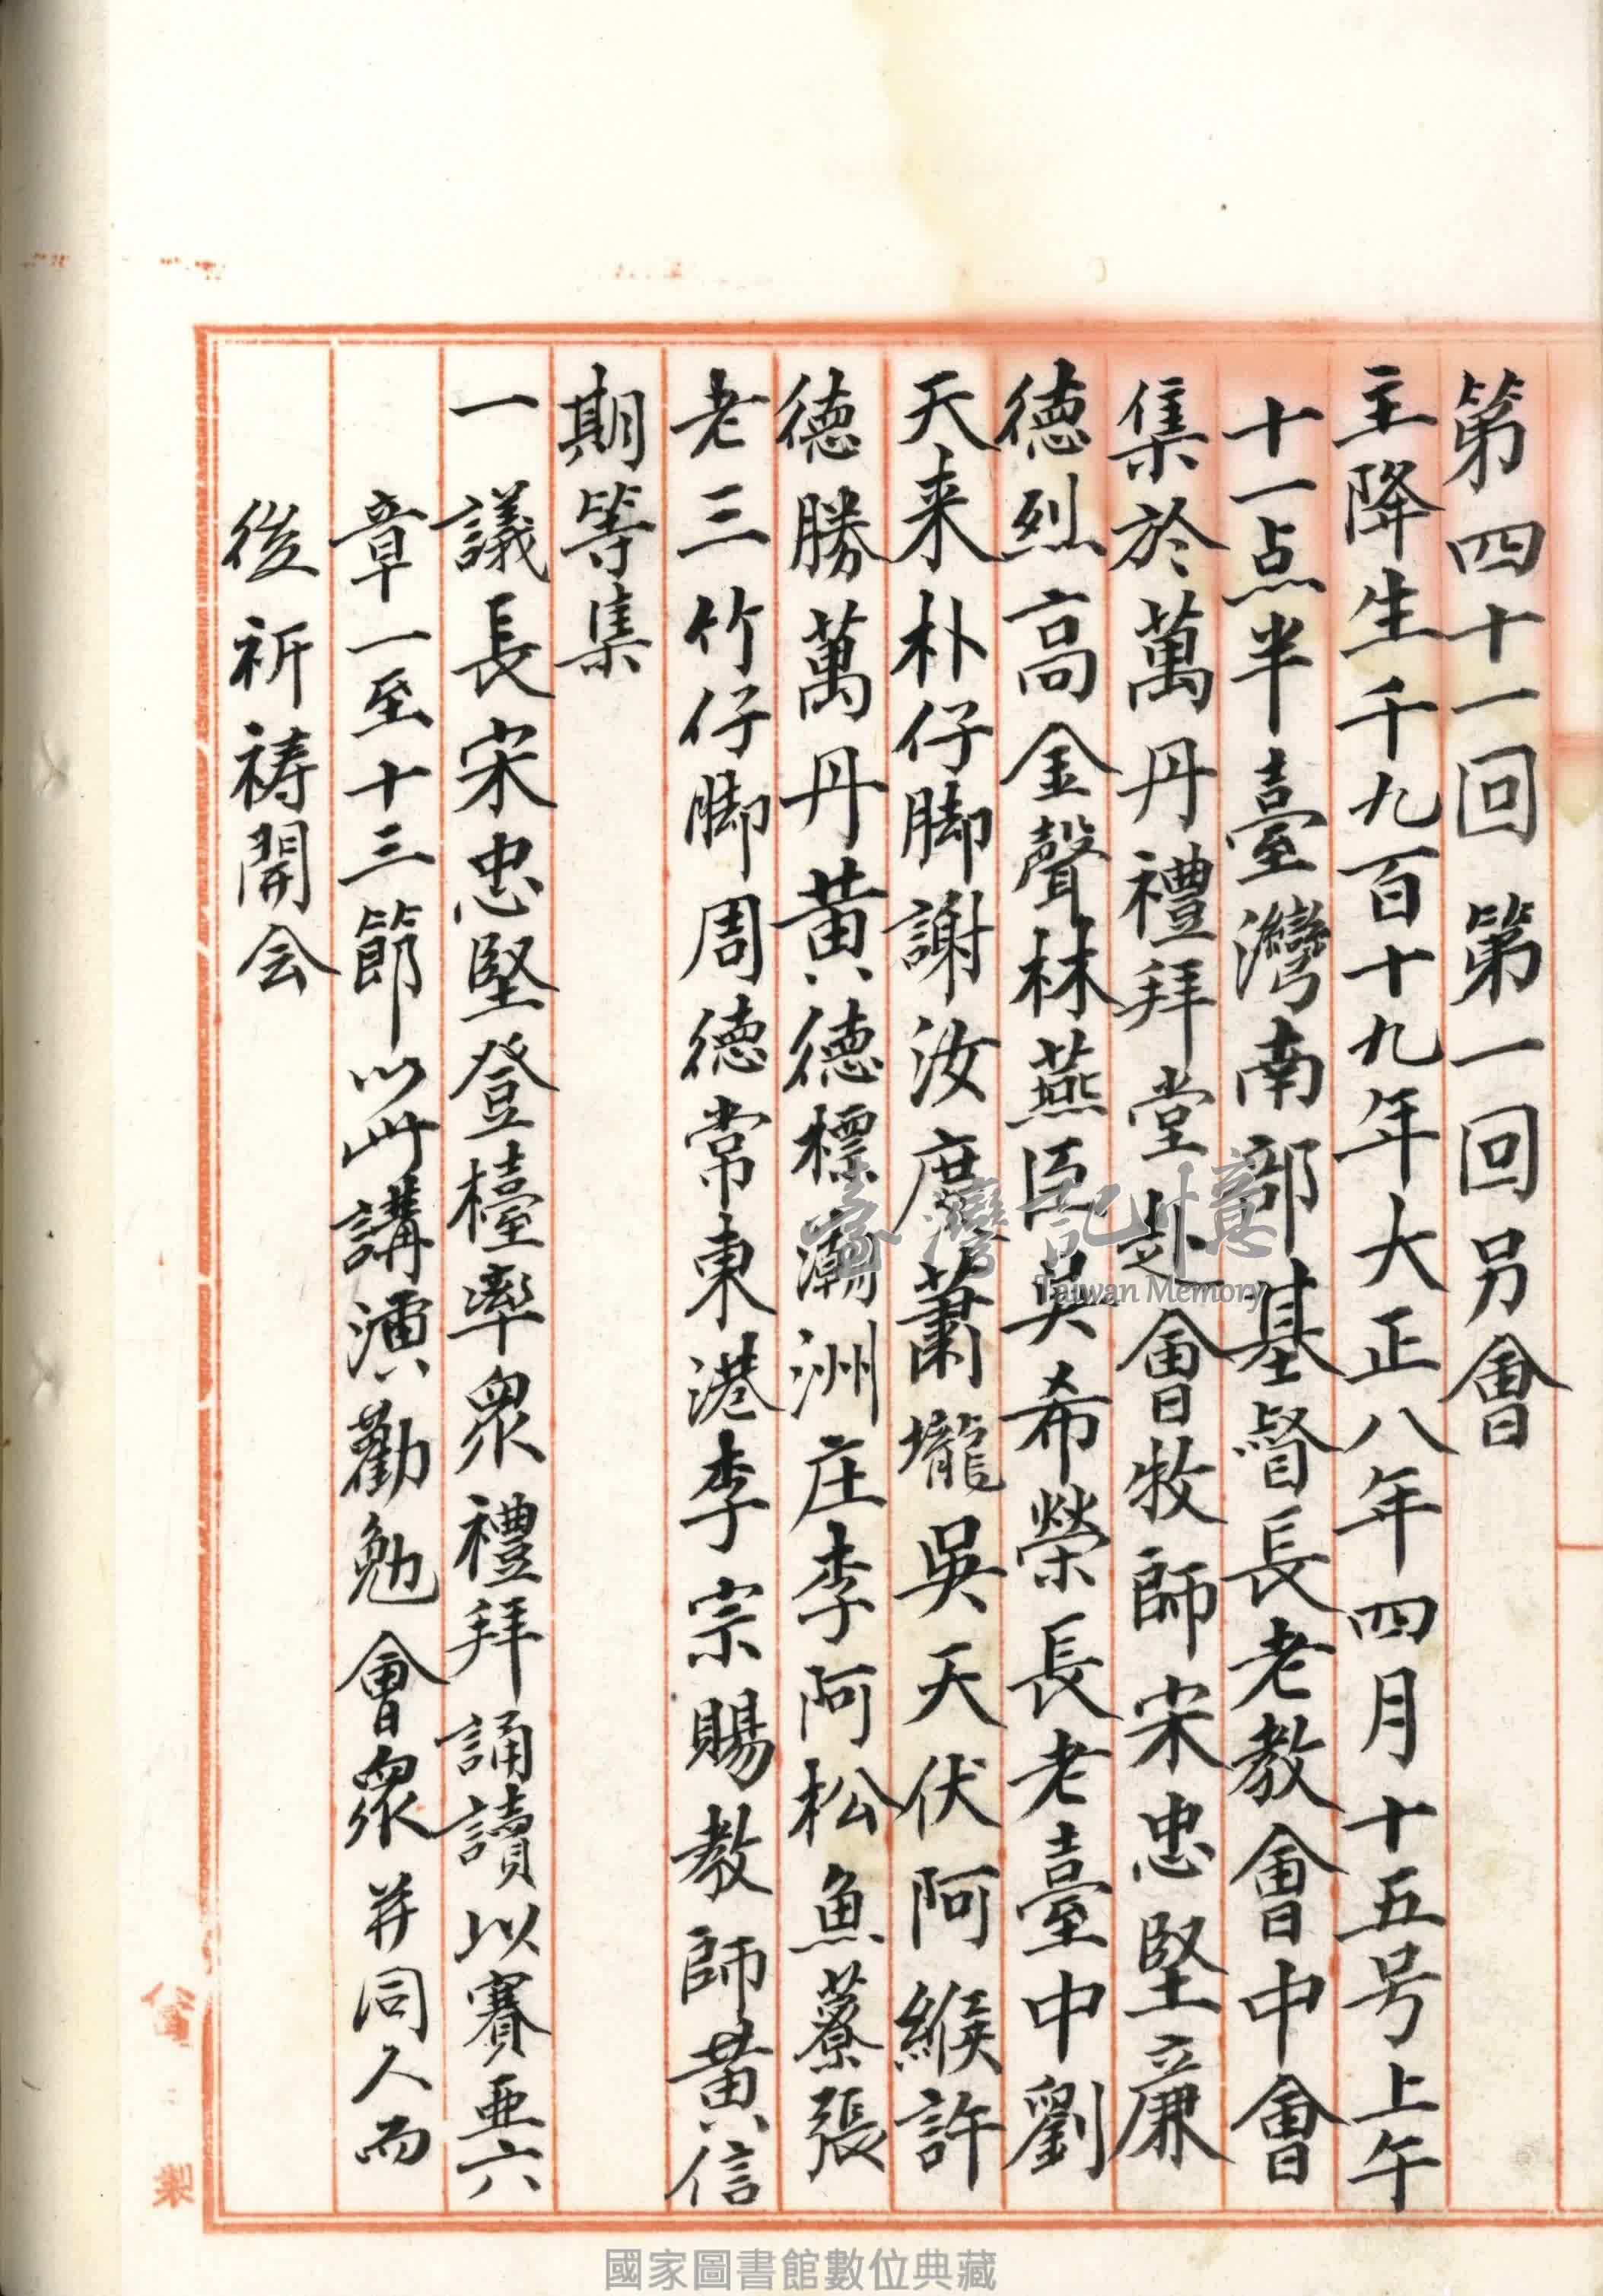 第四十一回 第一回另會
主降生千九百十九年大正八年四月十五号上午
十一点半臺灣南部基督長老教會中會
集於萬丹禮拜堂赴會牧師宋忠堅廉
德烈高金聲林燕臣吳希榮長老臺中劉
天来朴仔脚謝汝庶蕭壠吳天伏阿緱許
德勝萬丹黃德標潮洲庄李阿松魚藔張
老三竹仔脚周德常東港李宗賜教師黃信
期等集
一議長宋忠堅登檯率眾禮拜誦讀以賽亜六
章一至十三節以此講演勸勉會眾并同人而
後祈禱開会
臺灣記憶
Taiwan Memory
國家圖書館數位典藏